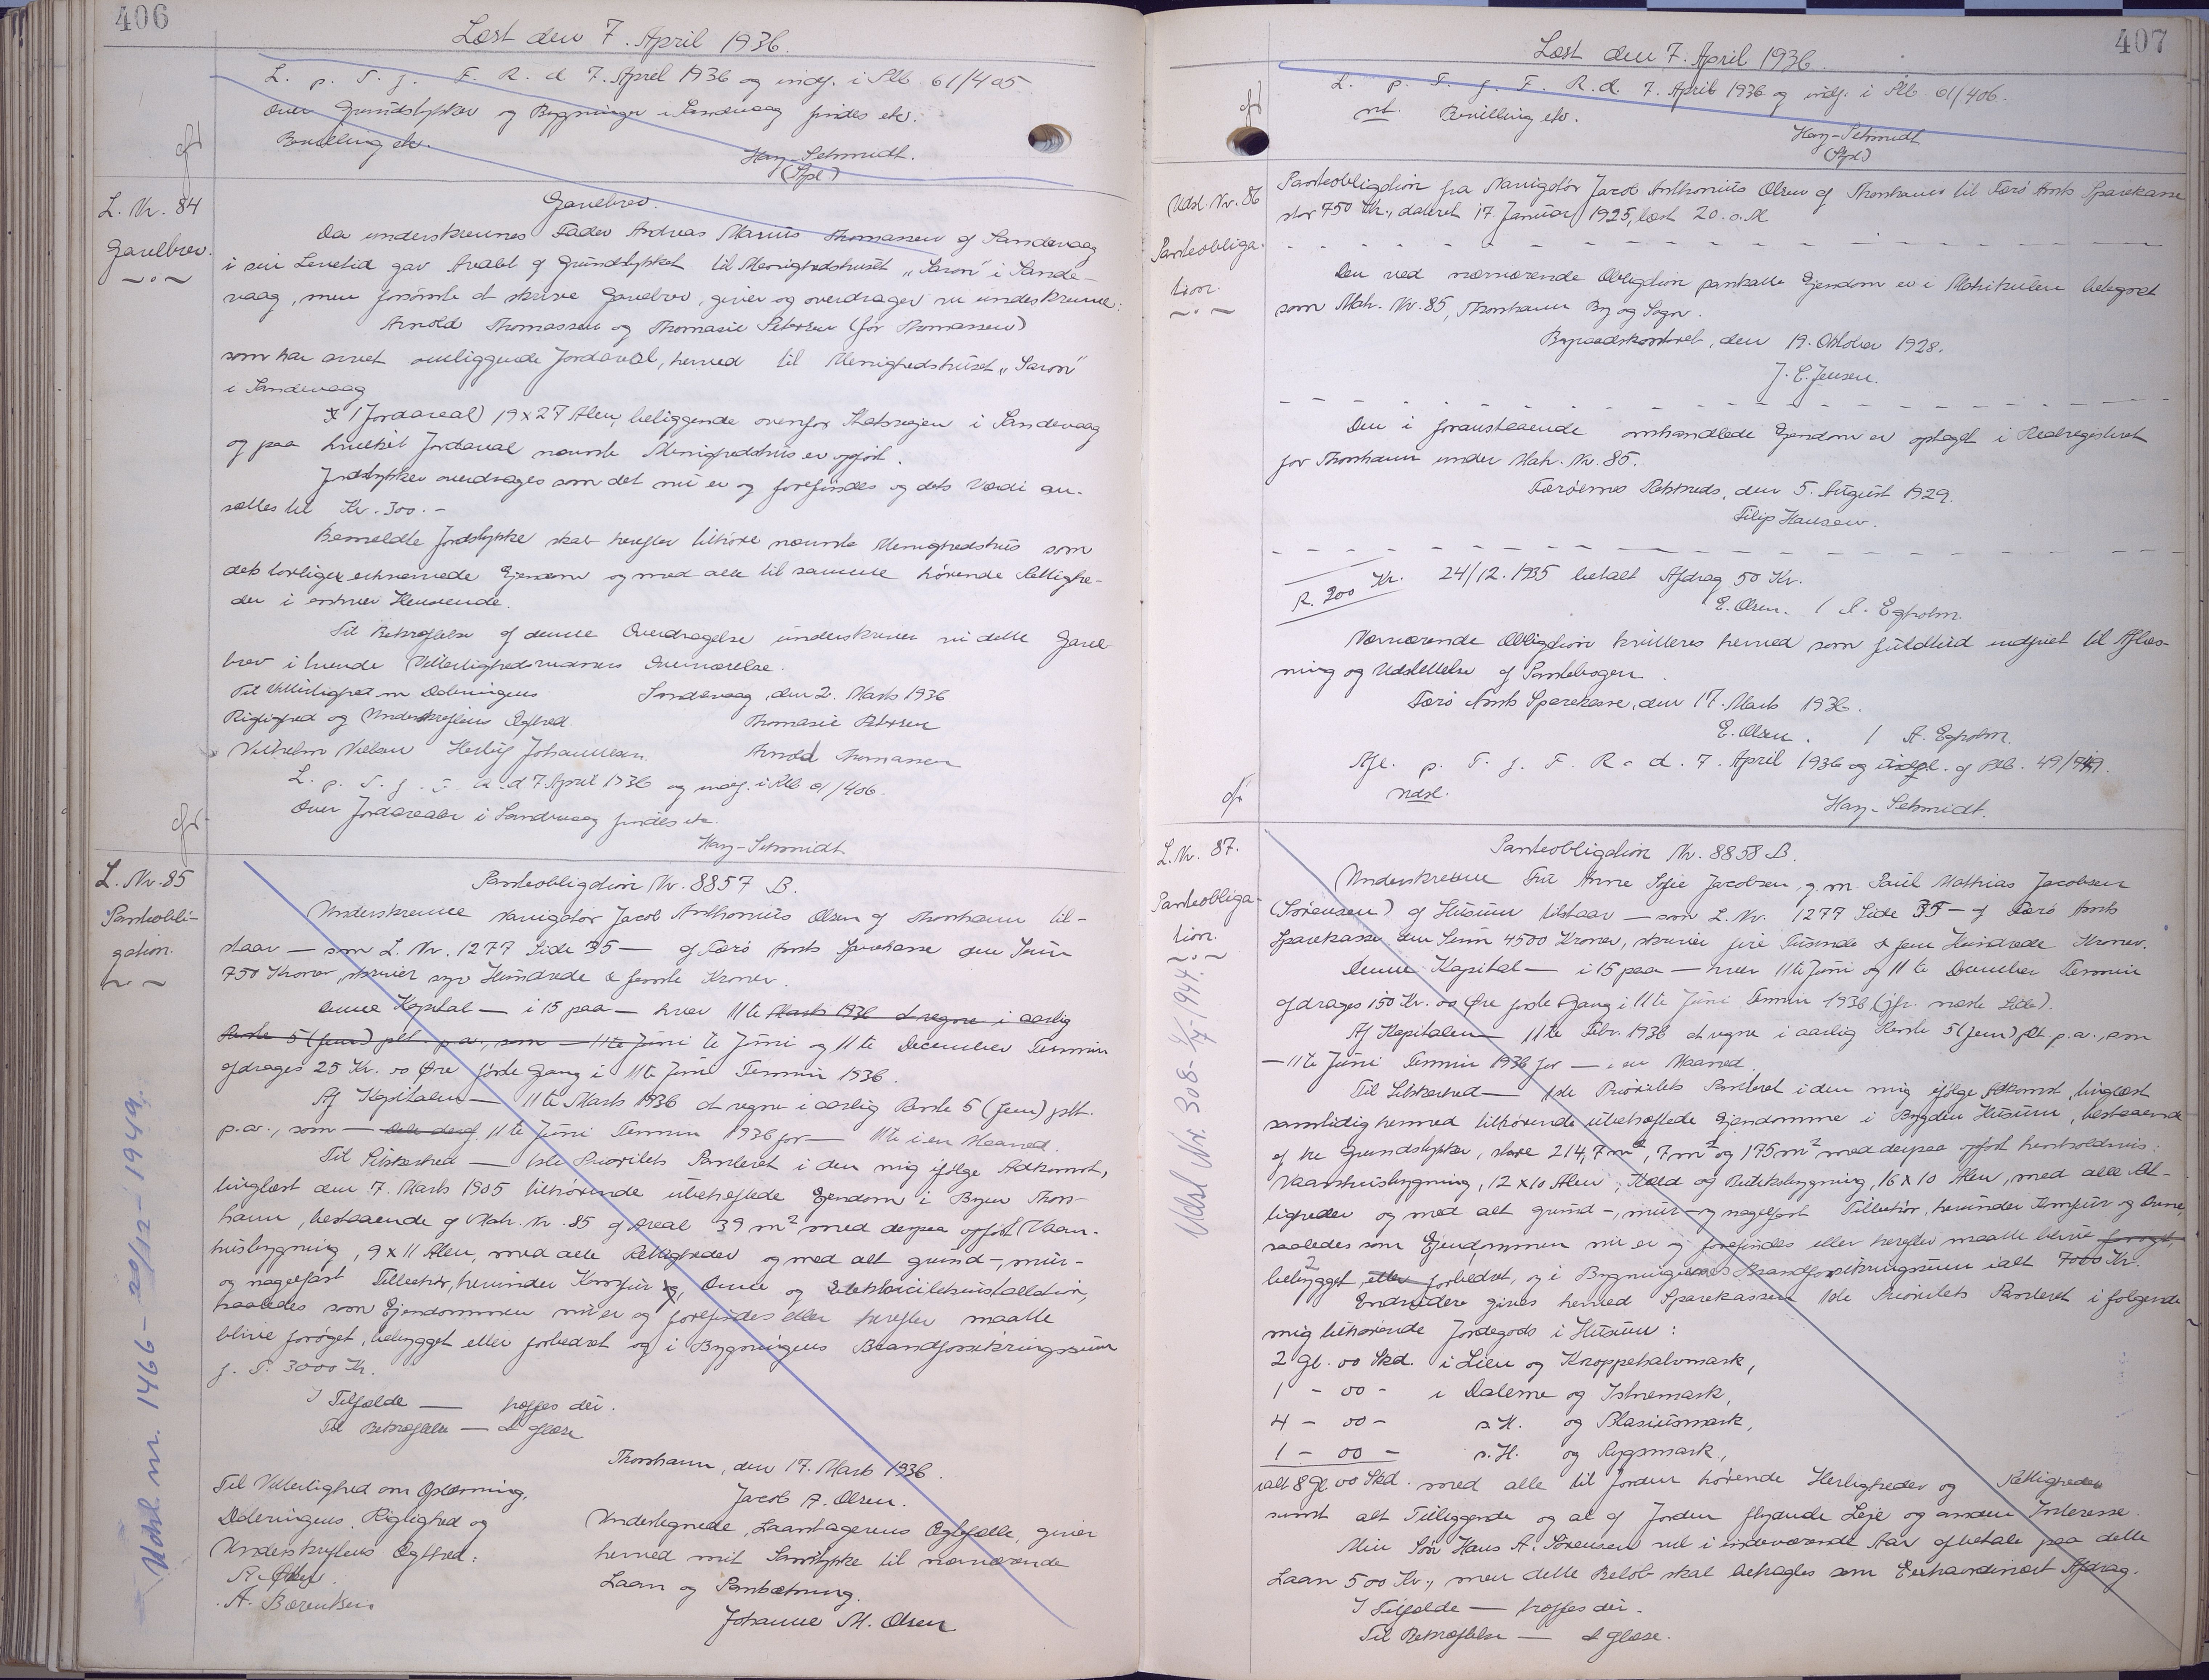 406
Læst den 7. April 1936.
L. p. T. f. F. R. d. 7. April 1936 og indf. i Pb. 61/405
Over Grundstykker og Bygninger i Sandevaag findes ektr.
Bevilling ektr.
Hay-Schmidt.
(Stpl)
cfr
L. Nr. 84
Gavebrev.
Gavebrev.
Da underskrevnes Fader Andreas Marius Thomassen af Sandevaag
i sin Levetid gav Arealet af Grundstykket til Menighedshuset "Saron" i Sande-
vaag, men forsømte at skrive Gavebrev, giver og overdrager vi underskrevne:
Arnold Thomassen og Thomasie Petersen (før Thomassen)
som har arvet omliggende Jordareal, herved til Menighedshuset "Saron"
i Sandevaag
1 Jordareal 19 x 27 Alen, beliggende ovenfor Statsvejen i Sandevaag
og paa hvilket Jordareal nævnte Menighedshus er opført.
Jordstykket overdrages som det nu er og forefindes og dets Værdi an-
sættes til Kr. 300.-
Bemeldte Jordstykke skal herefter tilhøre nævnte Menighedshus som
dets lovlige erhvervede Ejendom og med alle til samme hørende Rettighe-
der i enhver Henseende.
Til Bekræftelse af denne Overdragelse underskriver vi dette Gave-
brev i tvende Vitterlighedsvidners Overværelse.
Til Vitterlighed om Dateringens
Sandevaag, den 2. Marts 1936
Rigtighed og Underskriftens Ægthed.
Thomasie Petersen
Vilhelm Nielsen Herluf Johannesen.
Arnold Thomassen
L. p. T. f. F. R. d. 7 April 1936 og indf. i Pb 61/406.
Over Jordarealer i Sandevaag findes ektr.
Hay-Schmidt
cfr.
L. Nr. 85
Panteobli-
gation.
Panteobligation Nr. 8857 B.
Underskrevne Navigatør Jacob Anthonius Olsen af Thorshavn til-
staar — som L. Nr. 1277 Side 35 — af Færø Amts Sparekasse den Sum
750 Kroner, skriver syv Hundrede & femti Kroner.
Denne Kapital — i 15 paa — hver 11te Marts 1936 at regne i aarlig
Rente 5 (fem) pct. p.a., som — 11te Juni te Juni og 11te December Termin
afdrages 25 Kr. 00 Øre første Gang i 11te Juni Termin 1936.
Af Kapitalen — 11te Marts 1936 at regne i aarlig Rente 5 (fem) pct.
p.a., som — 11te Juni Termin 1936 for — 11te i en Maaned.
Til Sikkerhed — 1ste Prioritets Panteret i den mig ifølge Adkomst,
tinglæst den 7. Marts 1905 tilhørende ubehæftede Ejendom i Byen Thors-
havn, bestaaende af Matr. Nr. 85 af Areal 39 m² med derpaa opført Vaan-
husbygning, 9 x 11 Alen, med alle Rettigheder og med alt grund-, mur-
og nagelfast Tilbehør, herunder Komfur og, Ovne og Elektricitetsinstallation,
saaledes som Ejendommen nu er og forefindes eller herefter maatte
blive forøget, bebygget eller forbedret og i Bygningens Brandforsikringssum
f. T. 3000 Kr.
I Tilfælde — træffes der.
Til Bekræftelse — at aflæse
Thorshavn, den 17. Marts 1936.
Til Vitterlighed om Oplæsning,
Jacob A. Olsen.
Dateringens Rigtighed og
Undertegnede, Laantagerens Ægtefælle, giver
Underskriftens Ægthed:
herved mit Samtykke til nærværende
Laan og Pantsætning.
A. Berentsen.
Johanne M. Olsen
Udsl. nr. 1466 - 20/12 - 1949.
407
Læst den 7. April 1936.
L. p. T. f. F. R. d. 7. April 1936 og indf. i Pb. 61/406.
nt. Bevilling ektr.
Hay-Schmidt
(Stpl)
cfr
Udsl. Nr. 86
Panteobliga-
tion.
Panteobligation fra Navigatør Jacob Anthonius Olsen af Thorshavn til Færø Amts Sparekasse
stor 750 Kr., dateret 17. Januar 1925, læst 20. s. M.
Den ved nærværende Obligation pantsatte Ejendom er i Matrikulen betegnet
som Matr. Nr. 85, Thorshavn By og Sogn.
Byraadskontoret, den 19. Oktober 1928.
J. C. Jensen.
Den i foranstaaende omhandlede Ejendom er optaget i Realregisteret
for Thorshavn under Matr. Nr. 85.
Færøernes Retskreds, den 5. August 1929.
Filip Hansen.
R. 200 Kr.
24/12. 1935 betalt Afdrag 50 Kr.
E. Olsen. / A. Egholm.
Nærværende Obligation kvitteres herved som fuldtud indfriet til Aflæs-
ning og Udslettelse af Pantebogen.
Færø Amts Sparekasse, den 17. Marts 1936.
E. Olsen. / A. Egholm.
Afl. p. T. f. F. R. d. 7. April 1936 og udsl. af Pb. 49/749.
Udsl.
Hay-Schmidt.
cfr
L. Nr. 87.
Panteobliga-
tion.
Panteobligation Nr. 8858 B.
Underskrevne Fru Anne Sofie Jacobsen, g. m. Poul Mathias Jacobsen
(Sørensen) af Husum tilstaar — som L. Nr. 1277 Side 35 — af Færø Amts
Sparekasse den Sum 4500 Kroner, skriver fire Tusende & fem Hundrede Kroner.
Denne Kapital — i 15 paa — hver 11te Juni og 11te December Termin
afdrages 150 Kr. 00 Øre første Gang i 11te Juni Termin 1936 (jfr. næste Side).
Af Kapitalen — 11te Febr. 1936 at regne i aarlig Rente 5 (fem) pct p.a., som
— 11te Juni Termin 1936 for — i en Maaned.
Til Sikkerhed — 1ste Prioritets Panteret i den mig ifølge Adkomst, tinglæst
samtidig hermed tilhørende ubehæftede Ejendomme i Bygden Husum, bestaaende
af tre Grundstykker, store 214,7 m², 7 m² og 175 m² med derpaa opført henholdsvis:
Vaanhusbygning, 12 x 10 Alen, Kæld og Butiksbygning, 16 x 10 Alen, med alle Ret-
tigheder og med alt grund-, mur- og nagelfast Tilbehør, herunder Komfur og Ovne,
saaledes som Ejendommen nu er og forefindes eller herefter maatte blive forøget,
bebygget, eller forbedret, og i Bygningernes Brandforsikringssum ialt 7000 Kr.
Endvidere gives herved Sparekassen 1ste Prioritets Panteret i følgende
mig tilhørende Jordegods i Husum:
2 Gl. 00 Skd. i Lien og Kroppehalvmark,
1 - 00 - i Dalerne og Istnemark,
4 - 00 - s. H. og Blasiusmark,
1 - 00 - s. H. og Rygsmark,
ialt 8 Gl 00 Skd. med alle til Jorden hørende Herligheder og Rettigheder
samt alt Tilliggende og al af Jorden flydende Leje og anden Interesse.
Min Søn Hans A. Sørensen vil i indeværende Aar afbetale paa dette
Laan 500 Kr., men dette Beløb skal betragtes som Extraordinært Afdrag.
I Tilfælde — træffes der.
Til Bekræftelse — at aflæse.
Udsl Nr. 308 - 1941.